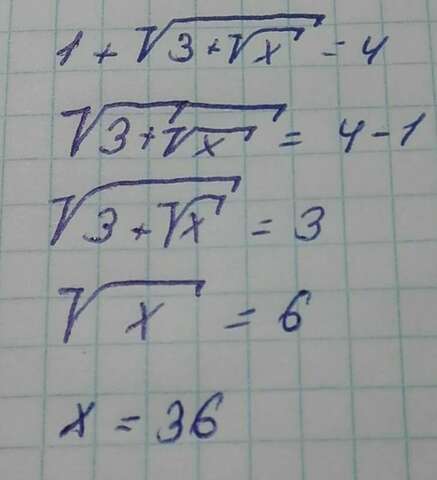 1 + √(3 + √x) = 4
√(3 + √x) = 4 - 1
√(3 + √x) = 3
√x = 6
x = 36